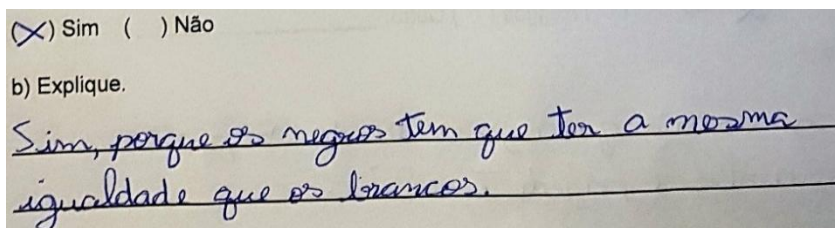 (X) Sim ( ) Não
b) Explique.
Sim, porque os negros tem que ter a mesma
igualdade que os brancos.